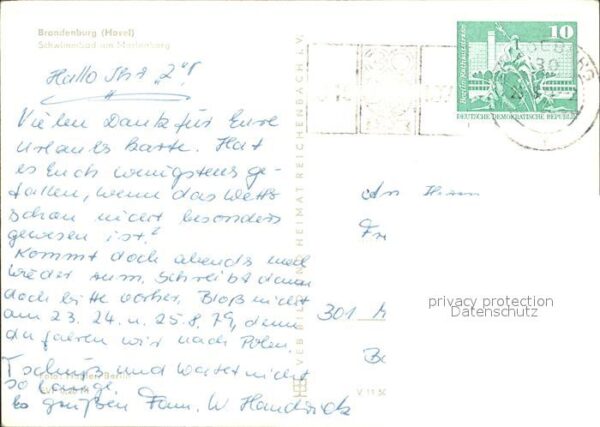 Brandenburg (Havel)
Schwimmbad am Marienberg
Hallo Ihr "2"!
Vielen Dank für Eure
Urlaubskarte. Hat
es Euch wenigstens ge-
fallen, wenn das Wetter
schon nicht besonders
gewesen ist?
Kommt doch abends mal
wieder rum. Schreibt dann
doch bitte vorher. Bloß nicht
am 23. 24. u. 25.8.79, denn
da fahren wir nach Polen.
Tschüß und wartet nicht
so lange.
Es grüßen Fam. W.
Berlin
VEB BILD UND HEIMAT REICHENBACH I. V.
V 11 50
10
DEUTSCHE DEMOKRATISCHE REPUBLIK
An
Fr
301 M
privacy protection
Datenschutz